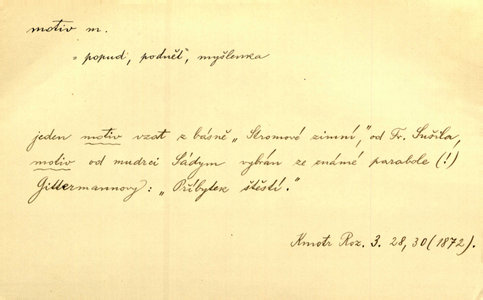 motiv m.
= popud, podnět, myšlenka
jeden motiv vzat z básně „Stromové zimní," od Fr. Sušila,
motiv od mudrci Sádym vybán ze známé parabole (!)
Gittermannovy: „Příbytek štěstí."
Kmotr Roz. 3. 28, 30 (1872).